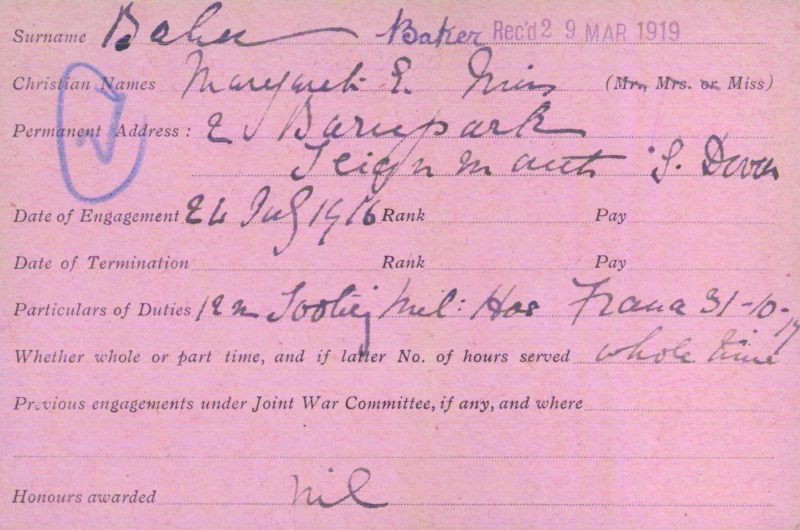 Surname Baker Baker Rec'd 29 MAR 1919
Christian Names Margaret E. Miss (Mr., Mrs. or Miss)
Permanent Address: 2 Barnpark
Teignmouth S. Devon
Date of Engagement 24 July 1916 Rank Pay
Date of Termination Rank Pay
Particulars of Duties Tooting Mil: Hos France 31-10-17
Whether whole or part time, and if latter No. of hours served whole time
Previous engagements under Joint War Committee, if any, and where
Honours awarded nil